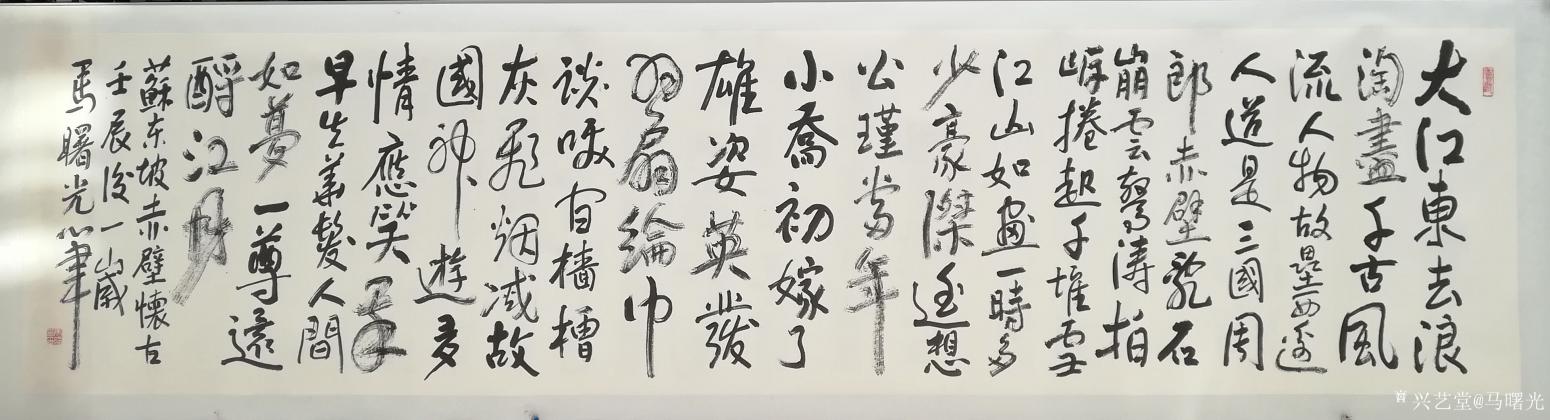 大江東去浪
淘盡千古風
流人物故壘西邊
人道是三國周
郎赤壁亂石
崩雲驚濤拍
岸捲起千堆雪
江山如畫一時多
少豪傑遥想
公瑾當年
小喬初嫁了
雄姿英發
羽扇綸巾
談咲间檣櫓
灰飛烟滅故
國神遊多
情應笑我
早生華髮人間
如夢一尊還
酹江月
蘇东坡赤壁懷古
壬辰後一
馬曙光
兴艺堂@马曙光